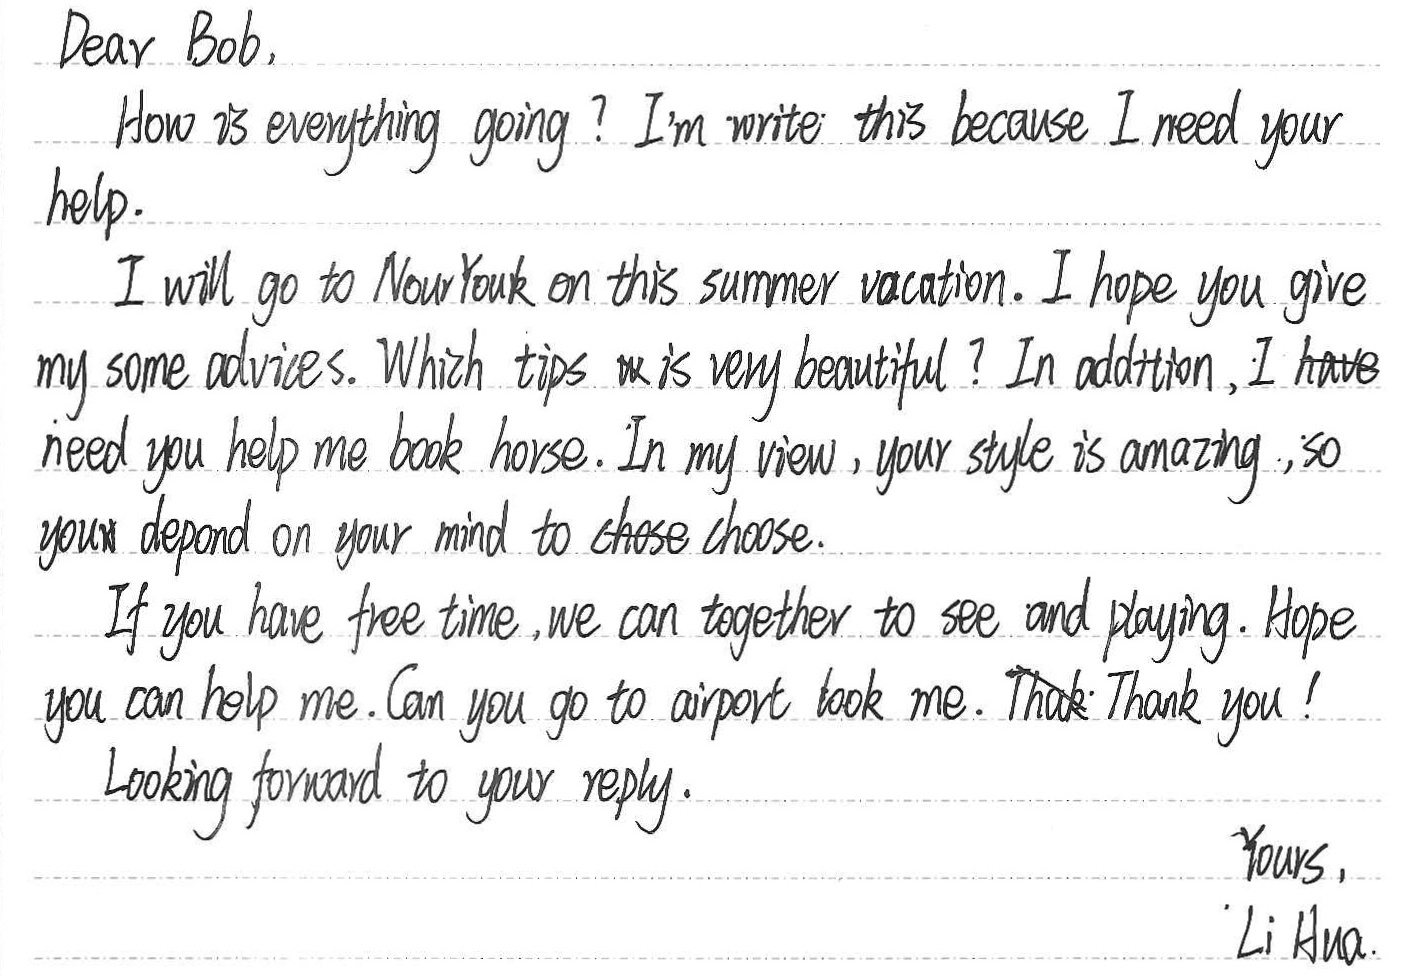 Dear Bob,
How is everything going? I'm write this because I need your
help.
I will go to NourYouk on this summer vacation. I hope you give
my some advices. Which tips is very beautiful? In addition, I
need you help me book horse. In my view, your style is amazing, so
your depond on your mind to choose.
If you have free time, we can together to see and playing. Hope
you can help me. Can you go to airport took me. Thank you!
Looking forward to your reply.
Yours,
Li Hua.